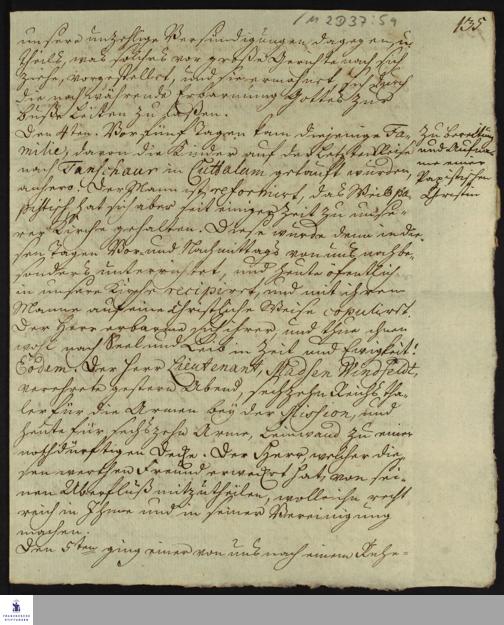 /M 2D37:59
135
unsere unzehlige Versündigungen, dagegen u.
theils, was solches vor große Gerichte nach sich
ziehe, vorgestellet, und sie ermahnet, sich durch
die noch währende Erbarmung Gottes zur
Buße leiten zu laßen.
Den 4ten. Vor fünf Tagen kam diejenige Fa-
milie, davon die Kinder auf der letzten Reise
nach Tanschaur in Cuttalam getauft wurden,
anhero. Der Mann ist reformirt, das Weib pä-
pstisch, hat sich aber seit einiger Zeit zu unse-
rer Kirche gehalten. Diese wurde denn in die-
sen Tagen Vor und Nachmittags von uns noch be-
sonders unterrichtet, und heute öfentlich
in unsere Kirche recipirt, und mit ihrem
Manne auf eine Christliche Weise copulirt.
Der Herr erbarme sich ihrer, und thue ihnen
wohl nach Seel und Leib in Zeit und Ewigkeit!
Eodem. Der Herr Lieutenant, Madsen Windfeldt,
verehrete gestern Abend, sechzehn Reichstha-
ler für die Armen bey der Mission, und
heute für sechszehn Arme, Leinwand zu einer
nothdürftigen Decke. Der Herr, welcher die-
sen werthen Freund erwecket hat, von sei-
nem Überfluß mitzutheilen, wolle ihn recht
reich in Ihme und in seiner Vereinigung
machen.
Den 5ten ging einer von uns nach einem
Zu Bereitung
und Aufnah-
me einer
Papistischen
Christin
FRANCKESCHE
STIFTUNGEN